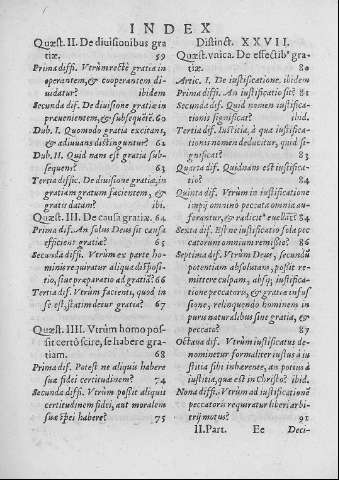 INDEX
Quæst. II. De diuisionibus gra
tiæ. 59
Prima diffi. Vtrùm rectè gratia in
operantem, & cooperantem di-
uidatur? ibidem
Secunda dif. De diuisione gratiæ in
præuenientem, & subsequẽtẽ. 60
Dub. I. Quomodo gratia excitans,
& adiuuans distinguatur? 62
Dub. II. Quid nam est gratia sub-
sequens? 63
Tertia diffic. De diuisione gratiæ, in
gratiam gratum facientem, &
gratis datam? ibi.
Quæst. III. De causa gratiæ. 64
Prima dif. An solus Deus sit causa
efficiens gratiæ? 65
Secunda diffi. Vtrùm ex parte ho-
minis requiratur aliqua dispositio,
siue præparatio ad gratiã? 66
Tertia dif. Vtrùm facienti, quod in
se est, statim detur gratia? 67
Quæst. IIII. Vtrùm homo pos-
sit certò scire, se habere gra-
tiam. 68
Prima dif. Potest ne aliquis habere
suæ fidei certitudinem? 74
Secunda diffi. Vtrùm possit aliquis
certitudinem fidei, aut moralem
suæ spei habere? 75
Distinct. XXVII.
Quæst. vnica. De effectibꝰ gra-
tiæ. 80
Artic. I. De iustificatione. ibidem
Prima diffi. An iustificatio sit? 81
Secunda dif. Quid nomen iustifica-
tionis significat? ibid.
Tertia dif. Iustitia, à qua iustifica-
tionis nomen deducitur, quid si-
gnificat? 83
Quarta dif. Quidnam est iustifica-
tio? 84
Quinta dif. Vtrùm in iustificatione
impij omnino peccata omnia au-
ferantur, & radicitꝰ euellãt? 84
Sexta dif. Est ne iustificatio sola pec-
catorum omnium remissio? 86
Septima dif. Vtrùm Deus, secundũ
potentiam absolutam, possit re-
mittere culpam, absq; iustifica-
tione peccatoris, & gratiæ infu-
sione, relinquendo hominem in
puris naturalibus sine gratia, &
peccato? 87
Octaua dif. Vtrùm iustificatus de-
nominetur formaliter iustus à iu-
stitia sibi inhærente, an potius à
iustitia, quæ est in Christo? ibid.
Nona diffi. Vtrùm ad iustificationẽ
peccatoris requiratur liberi arbi-
trij motus? 91
II. Part. Ee Deci-